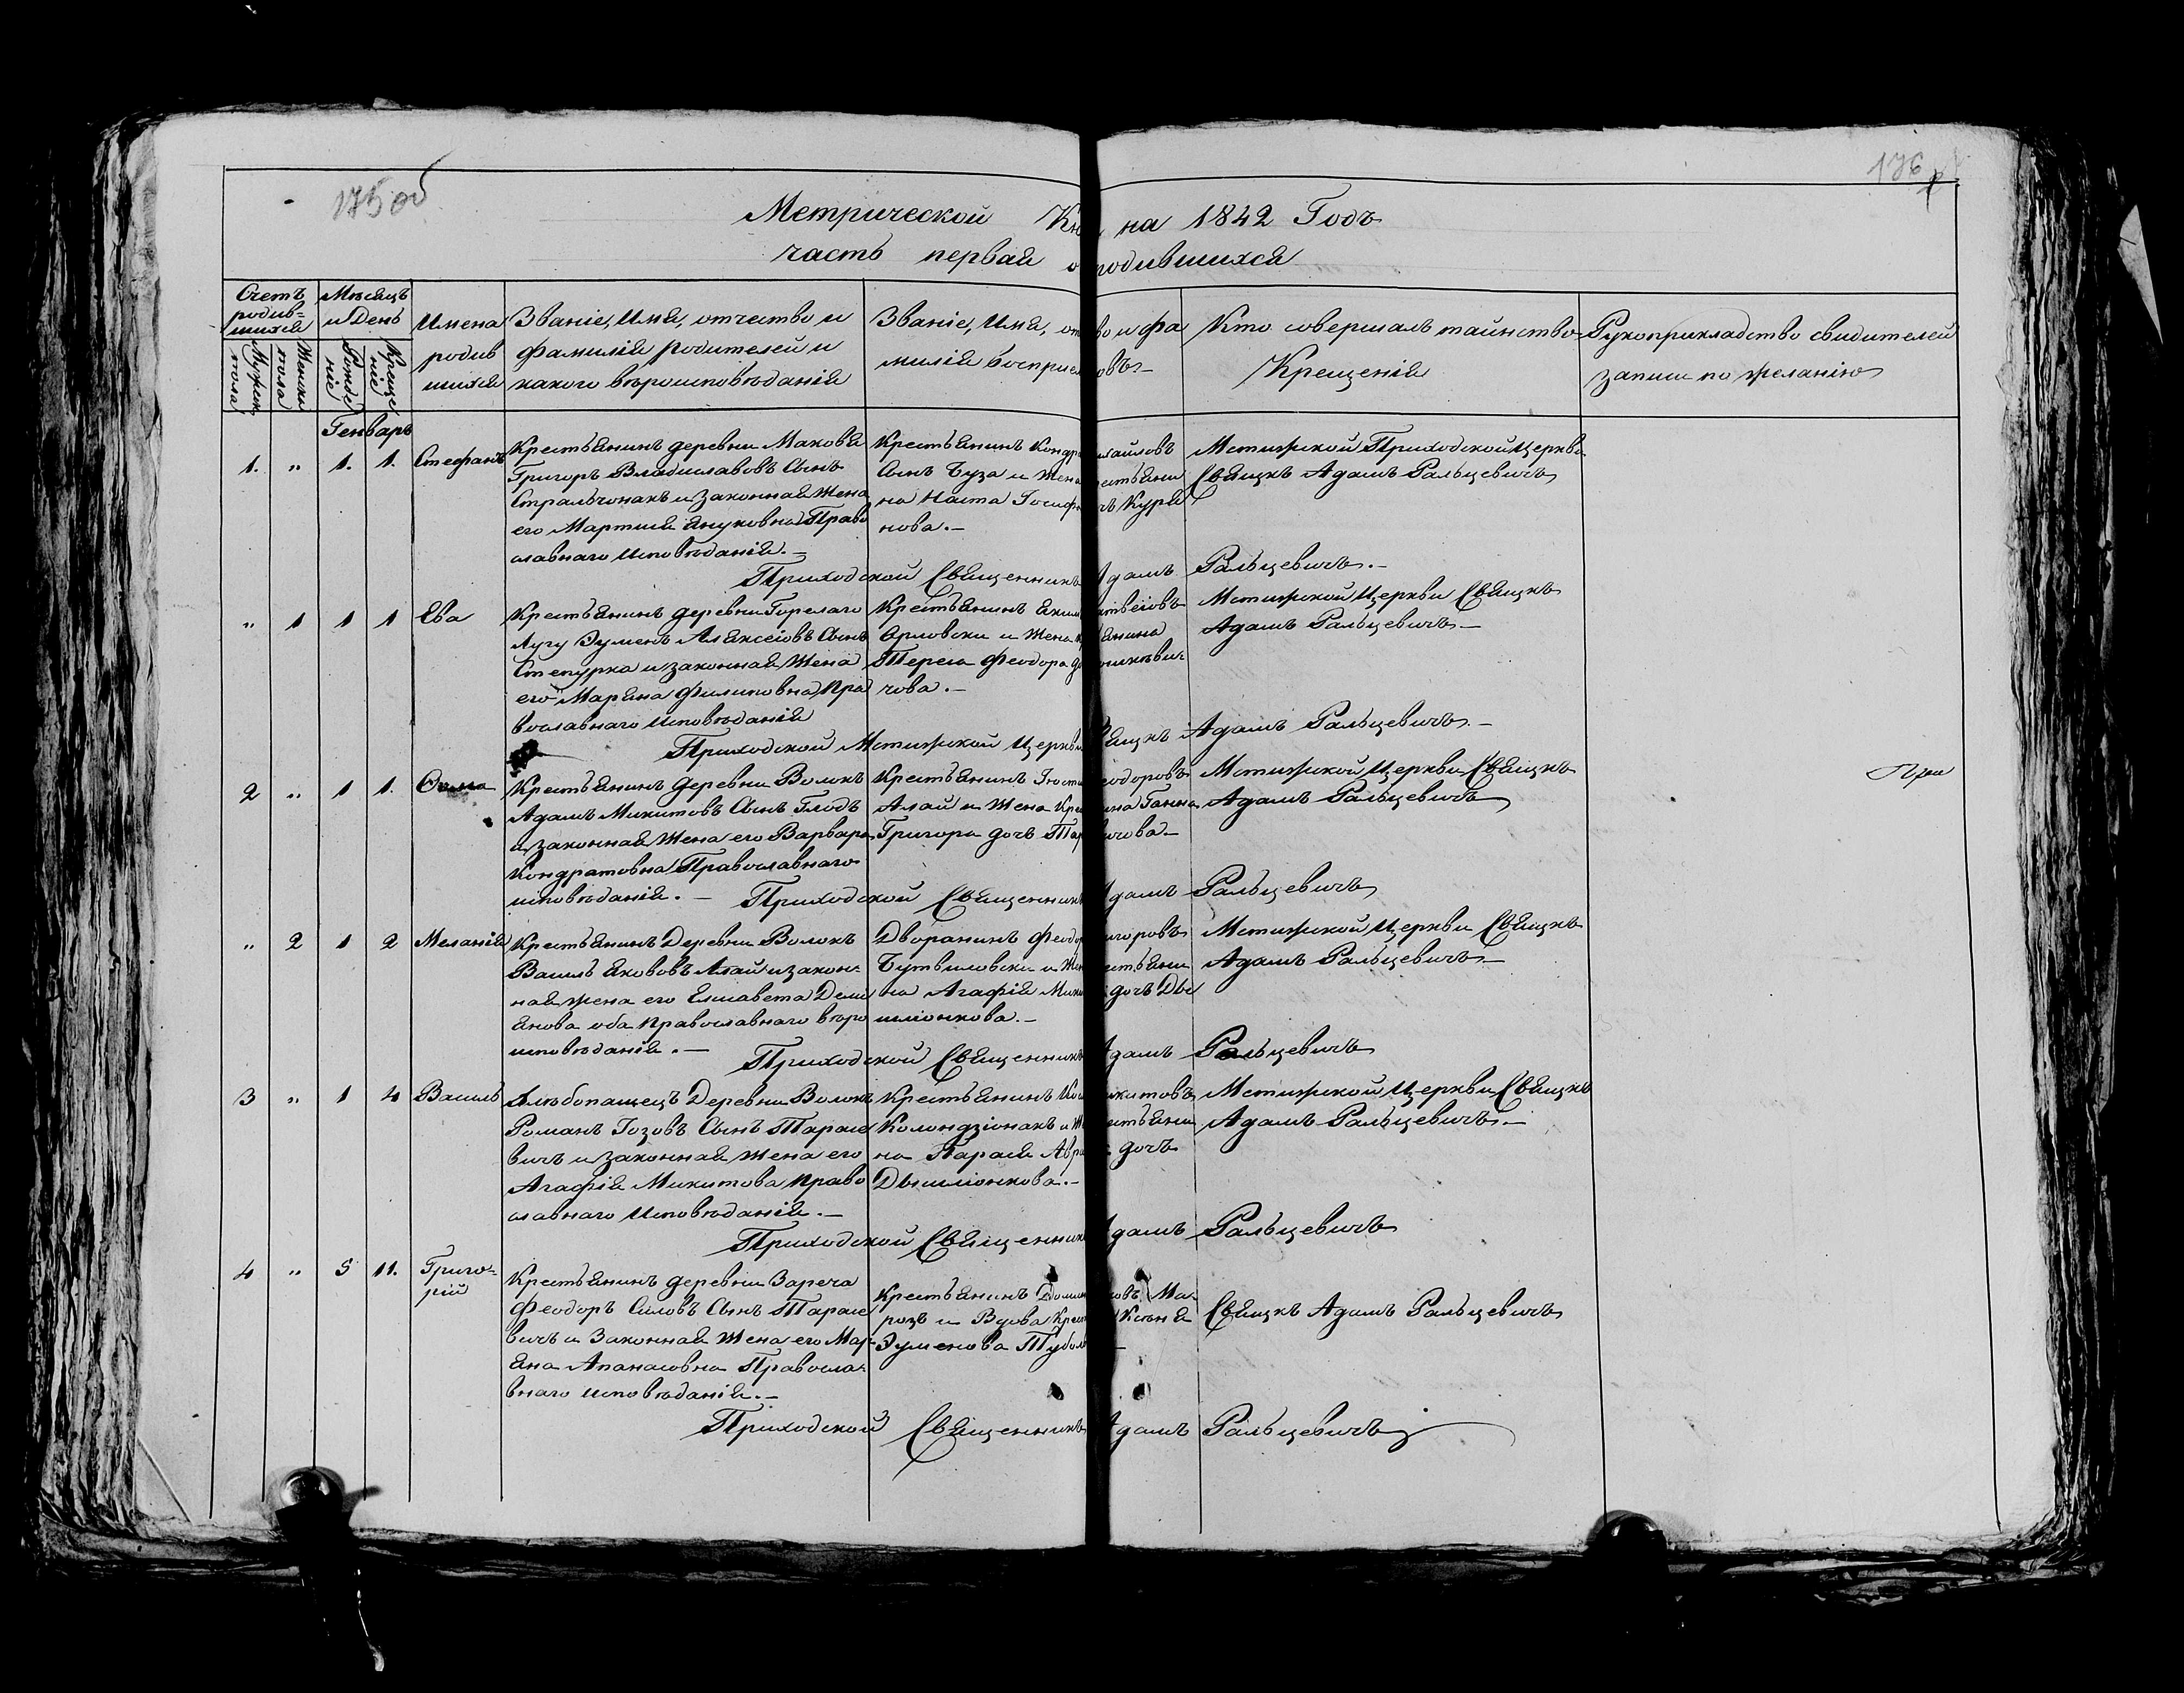 175 об
176
Метрической Кн на 1842 Годъ
часть первая о родившихся
Счетъ родив=шихся
Мужск. пола
Женска пола
Мѣсяцъ и День
Рожде ніе
Креще ніе
Имена родив шихся
Званіе, Имя, отчество и
фамилія родителей и
какого вѣроисповѣданія
Званіе, Имя, от во и фа
милія воспріем овъ.-
Кто совершалъ таинство
Крещенія
Рукоприкладство свидителей
записи по желанію
Генваръ
1. " 1. 1. Стефанъ
Крестьянинъ деревни Маковя
Григоръ Владиславовъ Сынъ
Стральчонакъ и законная Жена
его Марыия Януковна Право
славнаго Исповѣданія.-
Крестьянинъ Кондра хайловъ
Сынъ Буза и Жена естьяни
на Наста Іосифо чъ Куря
нова.-
Мстижской Приходской Церкви
Свящкъ Адамъ Ральцевичъ
Приходской Священникъ Адамъ Ральцевичъ.-
" 1 1 1 Ева
Крестьянинъ деревни Горелаго
Лугу Эуменъ Алексеіовъ Сынъ
Степурка и законная Жена
его Марьяна Филиповна Пра
вославнаго Исповѣданія
Крестьянинъ Яким атвеіовъ
Орловски и Жена кр янина
Тереса Феодора до оникѣви=
чова.-
Мстижской Церкви Свящкъ
Адамъ Ральцевичъ.-
Приходской Мстижской Церкви Свящкъ Адамъ Ральцевичъ.-
2 " 1 1.
Крестьянинъ деревни Волокъ
Адамъ Микитовъ Сынъ Глодъ
и законная Жена его Варвара
Кондратовна Православнаго
исповѣданія.-
Крестьянинъ Іюсти еодоровъ
Алай и Жена Кре ина Ганна
Григора дочъ Тар ичова.-
Мстижской Церкви Свящкъ
Адамъ Ральцевичъ
Приходской Священникъ Адамъ Ральцевичъ
" 2 1 2 Меланія
Крестьянинъ Деревни Волокъ
Василь Якововъ Алай и закон=
ная жена его Елисавета Деми
янова оба православнаго вѣро
исповѣданія.-
Дворанинъ Феодо игоровъ
Бутвиловски и Же естьяни
на Агафія Мик дочъ Ды
шлюнкова.-
Мстижской Церкви Свящкъ
Адамъ Ральцевичъ.-
Приходской Священникъ Адамъ Ральцевичъ
3 " 1 4 Василь
Хлѣбопашецъ Деревни Волокъ
Романъ Іозовъ Сынъ Тарасе
вичъ и законная жена его
Агафія Микитова Право
славнаго Исповѣданія.-
Крестьянинъ Ко икитовъ
Колондзіонакъ и Ж естьяни
на Парася Авра дочъ
Дышлюнкова.-
Мстижской Церкви Свящкъ
Адамъ Ральцевичъ.-
Приходской Священникъ Адамъ Ральцевичъ
4 " 5 11. Григо=рій
Крестьянинъ деревни Зареча
Феодоръ Силовъ Сынъ Тарасе
вичъ и Законная жена его Мар=
яна Апанасовна Правосла=
внаго Исповѣданія.-
Крестьянинъ Домин овъ Мо
розъ и Вдова Крес Ксѣня
Эуменова Тубол
Свящкъ Адамъ Ральцевичъ
Приходской Священникъ Адамъ Ральцевичъ